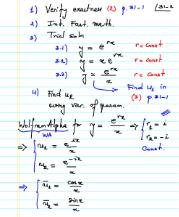 1) Verify exactness (2) p. 31-1 /31-2
2) Int. Fact. meth.
3) Trial soln
3.1) y = e^{rx} r = const
3.2) y = x e^{rx} r = const
3.3) y = e^{rx}/x r = const
4) Find u_2 Find u_1 in
using var. of param. (3) p. 31-1
Wolfram Alpha for y = e^{rx}/x => { r_1 = i
WA r_2 = -i
=> { u_1 = e^{ix}/x Const.
u_2 = e^{-ix}/x
=> { u_1 = cos x/x
u_2 = sin x/x